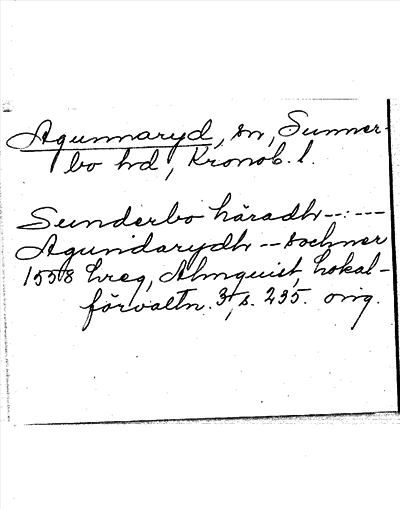 Agunnaryd, sn, Sunner-
bo hd, Kronob. l.
Sunderbo häradh--:---
Agundarydh -- sochner
1558 hreg, Almquist, Lokal-
förvaltn. 3, s. 235. orig.